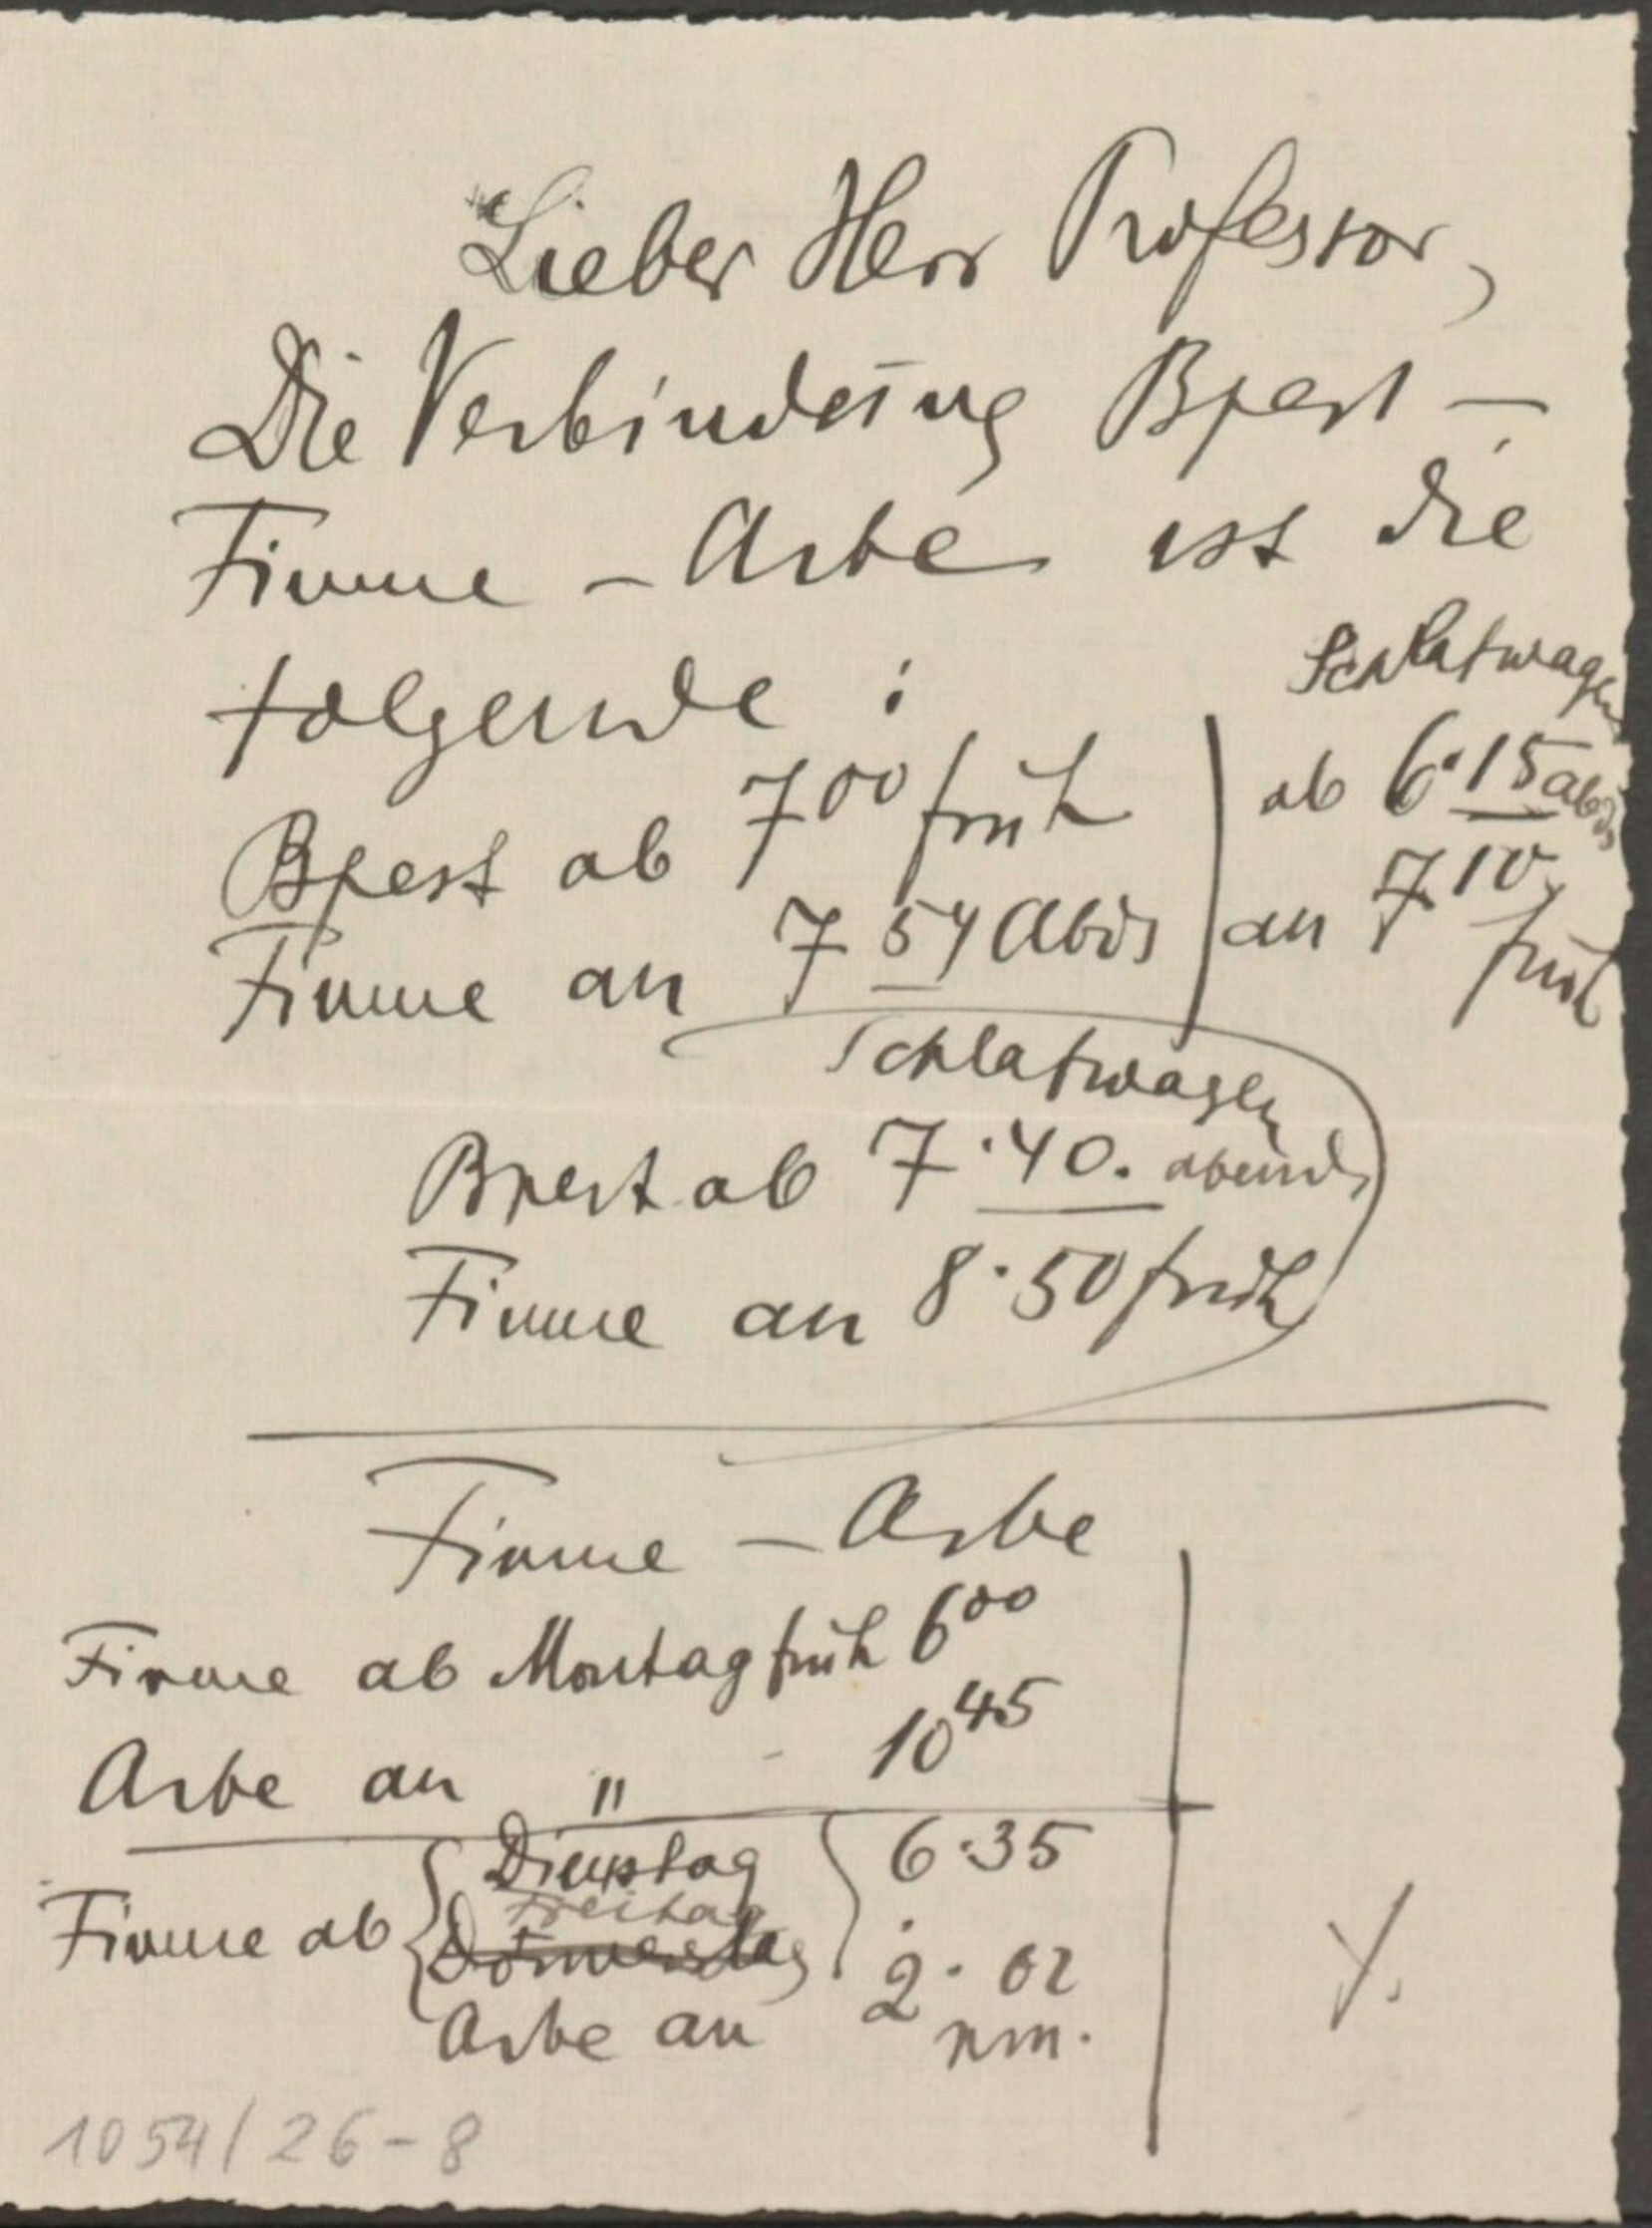 Lieber Herr Professor,
Die Verbindung Bpest –
Fiume – Arbe ist die
folgende :
Schlafwagen
Bpest ab 7⁰⁰ früh | ab 6·15 abds
Fiume an 7 54 Abds | an 7¹⁰ früh
Schlafwagen
Bpest ab 7·40. abends
Fiume an 8·50 früh
Fiume – Arbe
Fiume ab Montag früh 6⁰⁰
Arbe an " 10⁴⁵
Dienstag 6·35
Freitag
Fiume ab Donnerstag
Arbe an 2·02
nm.
1054/26-8